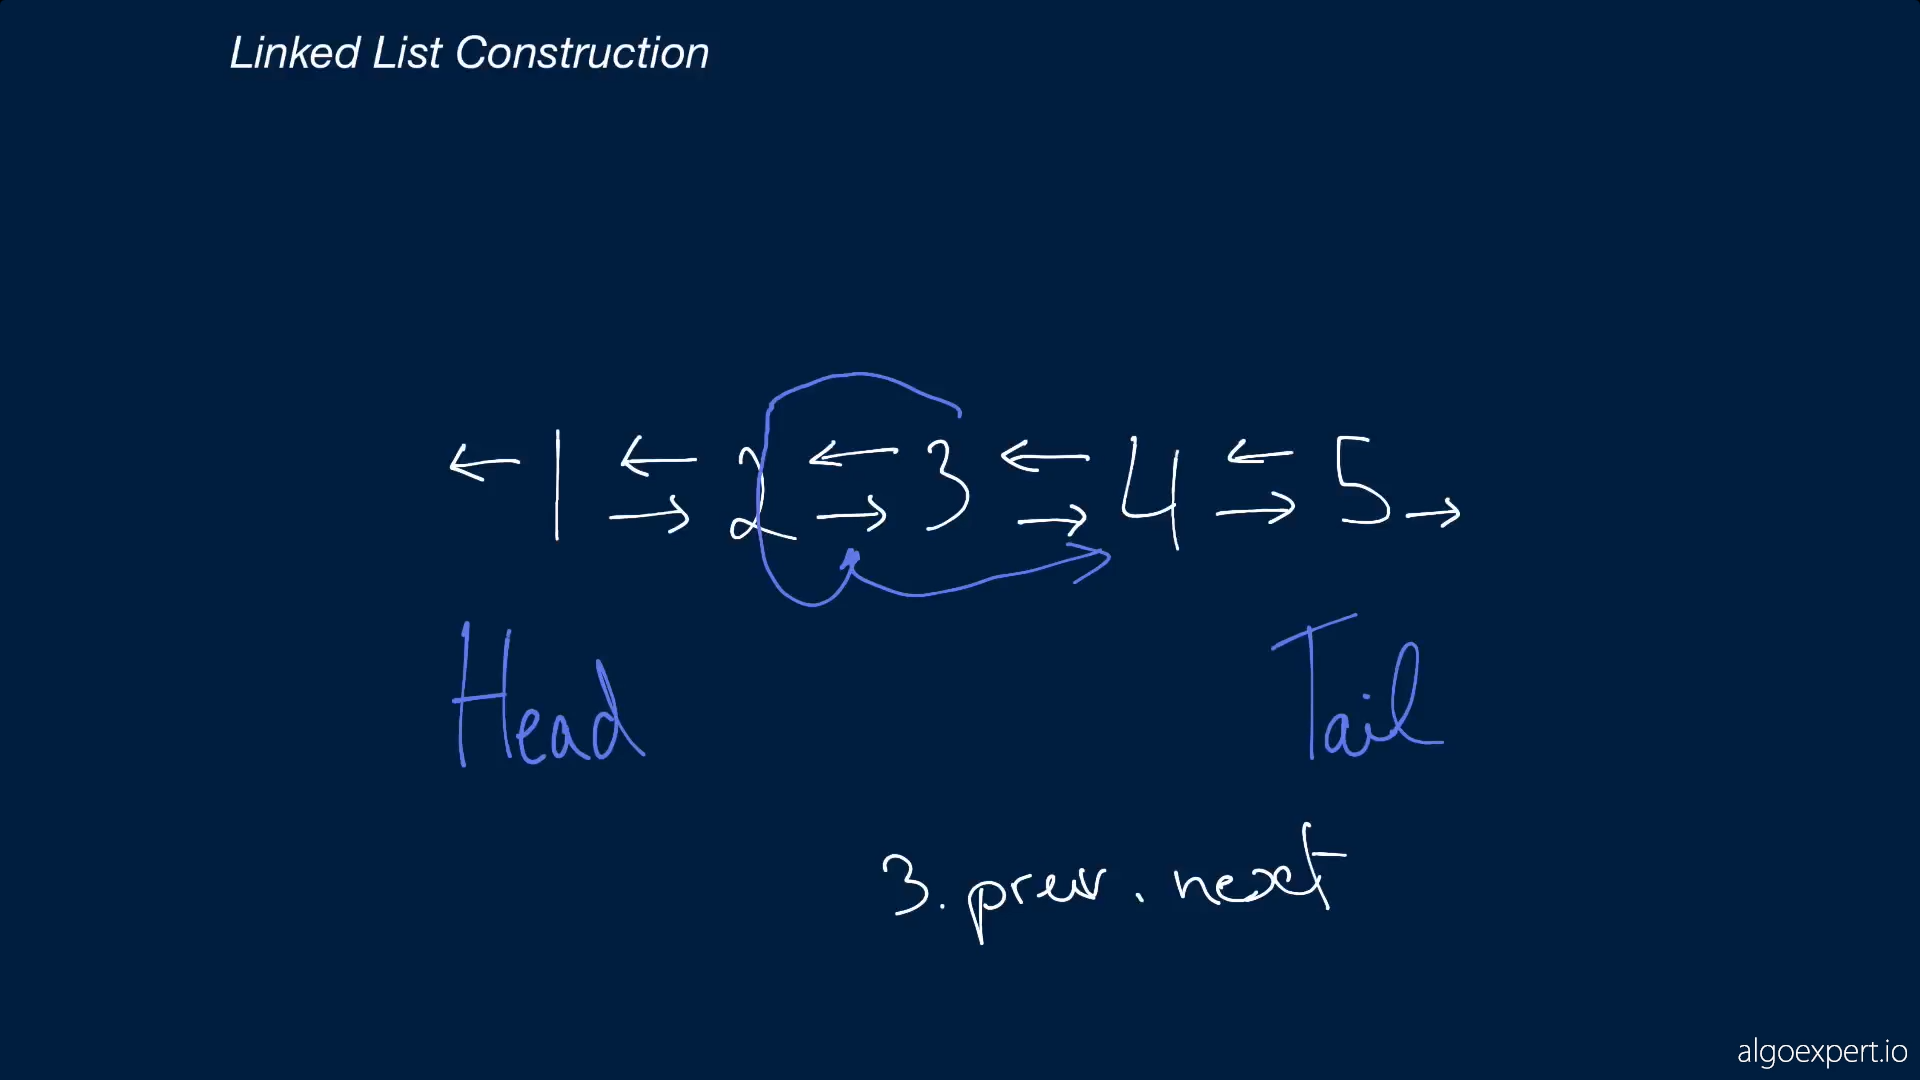 Linked List Construction
← 1 ← → 2 ← → 3 ← → 4 ← → 5 →
Head Tail
3.prev.next
algoexpert.io